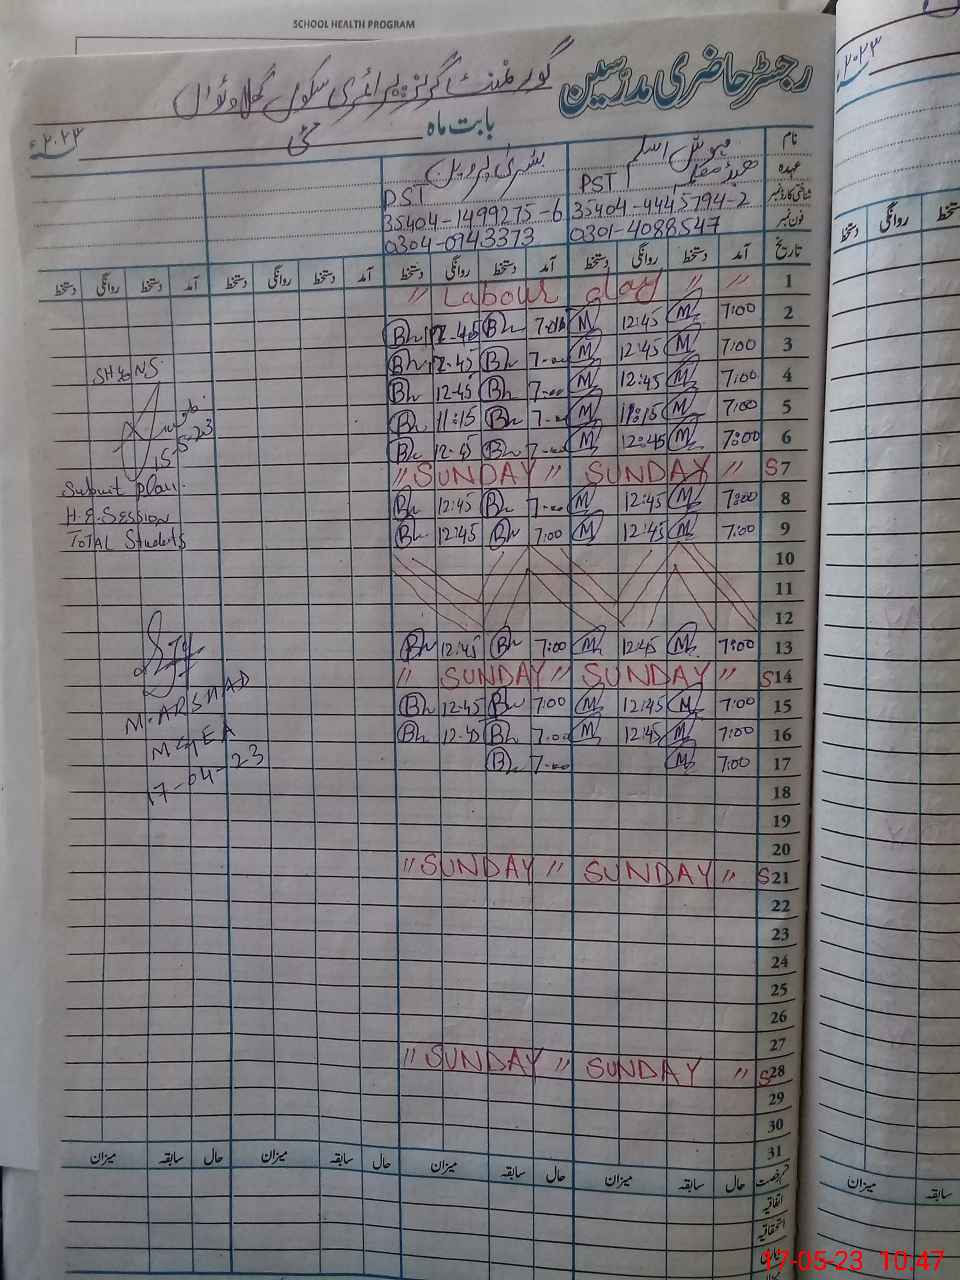 SCHOOL HEALTH PROGRAM
رجسٹر حاضری مدرسین گورنمنٹ گرلز پرائمری سکول
بابت ماہ مئی ۲۰۲۳
نام مہوش اسلم بشریٰ پروین
عہدہ PST PST
شناختی کارڈ نمبر 35404-4445794-2 35404-1499275-6
فون نمبر 0301-4088547 0304-0743373
تاریخ آمد دستخط روانگی دستخط آمد دستخط روانگی دستخط آمد دستخط روانگی دستخط آمد دستخط روانگی دستخط
" Labour day " " 1
Bh 12-45 Bh 7:00 M 12:45 M 7:00 2
Bh 12-45 Bh 7-00 M 12:45 M 7:00 3
Bh 12-45 Bh 7-00 M 12:45 M 7:00 4
Bh 11:15 Bh 7-00 M 11:15 M 7:00 5
Bh 12-45 Bh 7-00 M 12:45 M 7:00 6
" SUNDAY " SUNDAY " S7
Bh 12:45 Bh 7-00 M 12:45 M 7:00 8
Bh 12:45 Bh 7:00 M 12:45 M 7:00 9
10
11
12
Bh 12:45 Bh 7:00 M 12:45 M 7:00 13
" SUNDAY " SUNDAY " S14
Bh 12-45 Bh 7:00 M 12:45 M 7:00 15
Bh 12-45 Bh 7:00 M 12:45 M 7:00 16
Bh 7-00 M 7:00 17
18
19
20
" SUNDAY " SUNDAY " S21
22
23
24
25
26
27
" SUNDAY " SUNDAY " S28
29
30
31
SH&NS
15-5-23
Submit plan.
H.E. Session
ToTAL Students
M.ARSHAD
MEA
17-04-23
قسم رخصت حال سابقہ میزان حال سابقہ میزان حال سابقہ میزان حال سابقہ میزان
اتفاقیہ
استحقاقیہ
۲۰۲۳
دستخط روانگی دستخط
میزان سابقہ
17-05-23 10:47